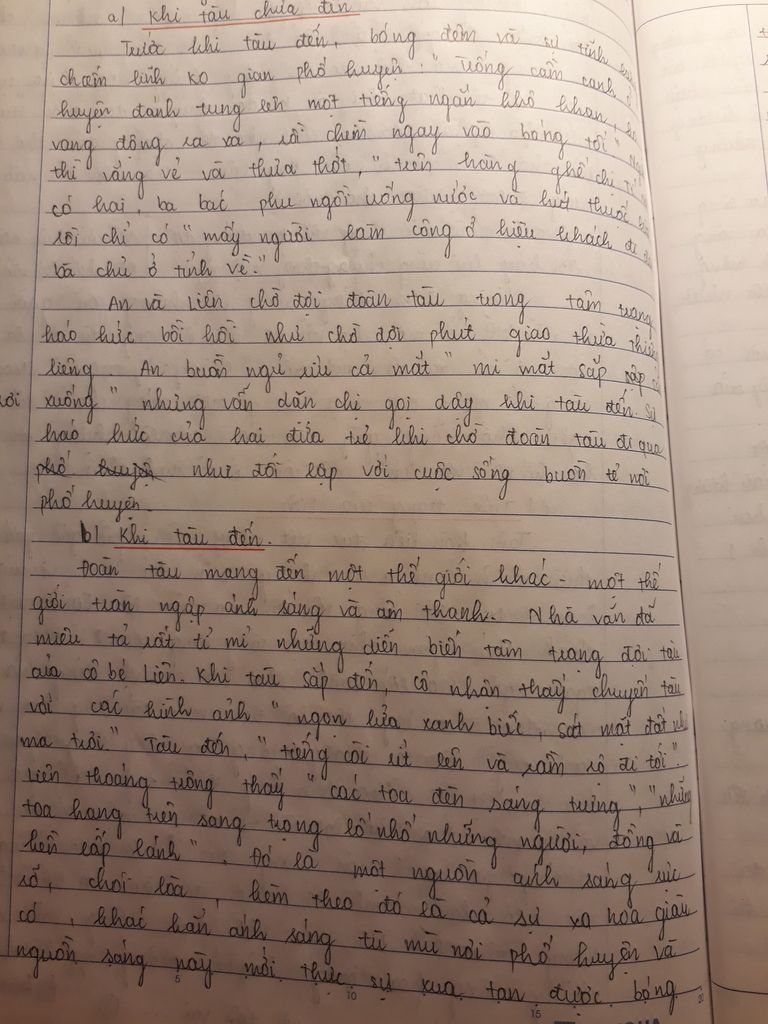 a) Khi tàu chưa đến
Trước khi tàu đến, bóng đêm và sự tĩnh
chấm lĩnh ko gian phố huyện: "Tiếng cầm canh ở
huyện đánh tung lên một tiếng ngắn khô khan,
vang động ra xa, rồi chìm ngay vào bóng tối"
thì vắng vẻ và thưa thớt, "trên hàng ghế chị Tí
có hai, ba bác phu ngồi uống nước và hút thuốc
rồi chỉ có "mấy người làm công ở hiệu khách đi
bà chủ ở tỉnh về."
An và Liên chờ đợi đoàn tàu trong tâm trạng
háo hức bồi hồi như chờ đợi phút giao thừa
liêng. An buồn ngủ ríu cả mắt "mi mắt sắp sập
rơi xuống" nhưng vẫn dặn chị gọi dậy khi tàu đến. Sự
háo hức của hai đứa trẻ khi chờ đoàn tàu đi qua
phố huyện như đối lập với cuộc sống buồn tẻ nơi
phố huyện.
b) Khi tàu đến.
Đoàn tàu mang đến một thế giới khác - một thế
giới tràn ngập ánh sáng và âm thanh. Nhà văn đã
miêu tả rất tỉ mỉ những diễn biến tâm trạng đợi tàu
của cô bé Liên. Khi tàu sắp đến, cô nhận thấy chuyến tàu
với các hình ảnh "ngọn lửa xanh biếc, sát mặt đất như
ma trơi." Tàu đến, "tiếng còi rít lên và rầm rộ đi tới".
Liên thoáng trông thấy "các toa đèn sáng trưng", "những
toa hạng trên sang trọng lố nhố những người, đồng và
kền lấp lánh". Đó là một nguồn ánh sáng rực
rỡ, chói lòa, kèm theo đó là cả sự xa hoa giàu
có, khác hẳn ánh sáng tù mù nơi phố huyện và
nguồn sáng này mới thực sự xua tan được bóng
5 10 15 20